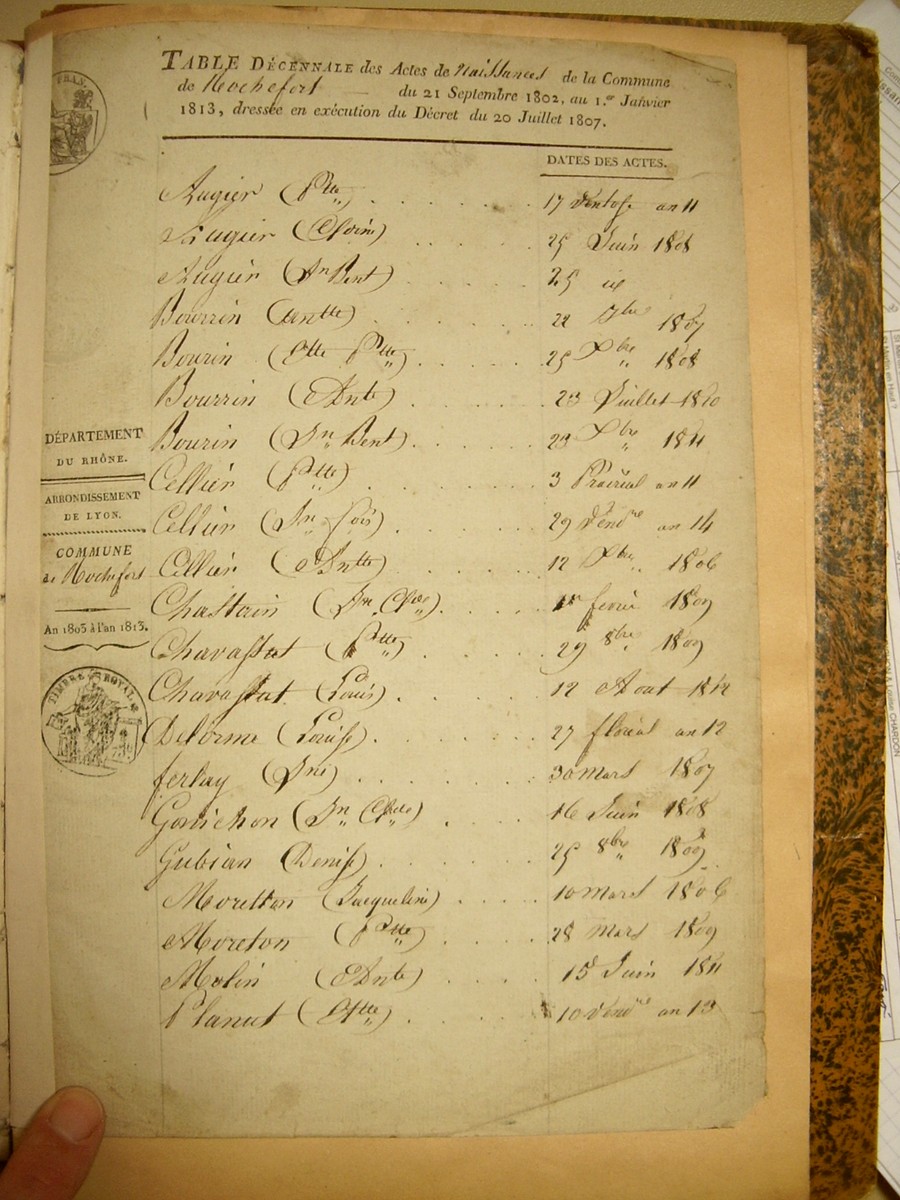 TABLE DÉCENNALE des Actes de Naissances de la Commune
de Rochefort — du 21 Septembre 1802, au 1.er Janvier
1813, dressée en exécution du Décret du 20 Juillet 1807.
FRAN.
DATES DES ACTES.
Augier (Ptte) 17 Ventose an 11
Augier 25 Juin 1808
Augier (Jn Bent) 25 id
Bourrin 22 7bre 1807
Bourin (Ptte) 25 Xbre 1808
Bourrin (Ante) 23 Juillet 1810
Bourin (Jn Bent) 23 Xbre 1811
Cellier (Ptte) 3 Prairial an 11
Cellier (Jn Fois) 29 Vendre an 14
Cellier (Antte) 12 Xbre 1806
Chastain (Jn Clde) 1er fevrier 1809
Chavassut (Ptte) 29 8bre 1809
Chavassut (Louis) 12 Aout 1812
Delorme (Louise) 27 floréal an 12
ferlay 30 Mars 1807
Gonichon (Jn Clde) 16 Juin 1808
Gubian (Denise) 25 8bre 1809
Moretton (Jacqueline) 10 Mars 1806
Moreton (Ptte) 28 Mars 1809
Molin (Ante) 15 Juin 1811
Planut 10 Vendre an 13
DÉPARTEMENT
DU RHÔNE.
ARRONDISSEMENT
DE LYON.
COMMUNE
de Rochefort
An 1803 à l'an 1813.
TIMBRE ROYAL